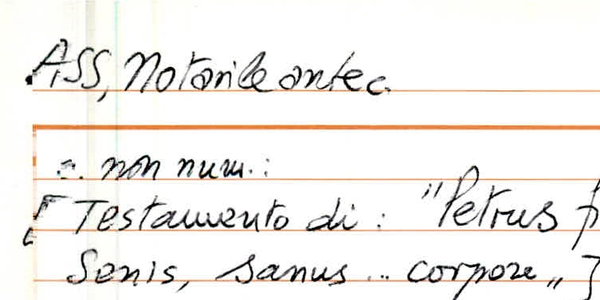 ASS, Notarile antec.
c. non num.:
[Testamento di: "Petrus
Senis, sanus .. corpore"]